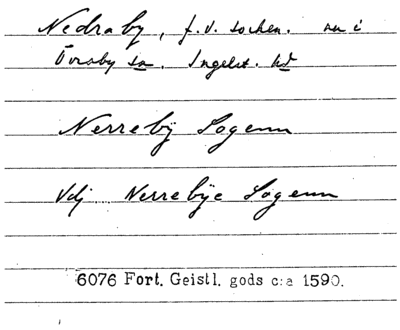 Nedraby, f.d. socken. nu i
Övraby sn. Ingelst. hd
Nerrebÿ Sogenn
Vdj Nerrebÿe Sogenn
6076 Fort. Geistl. gods c:a 1590.